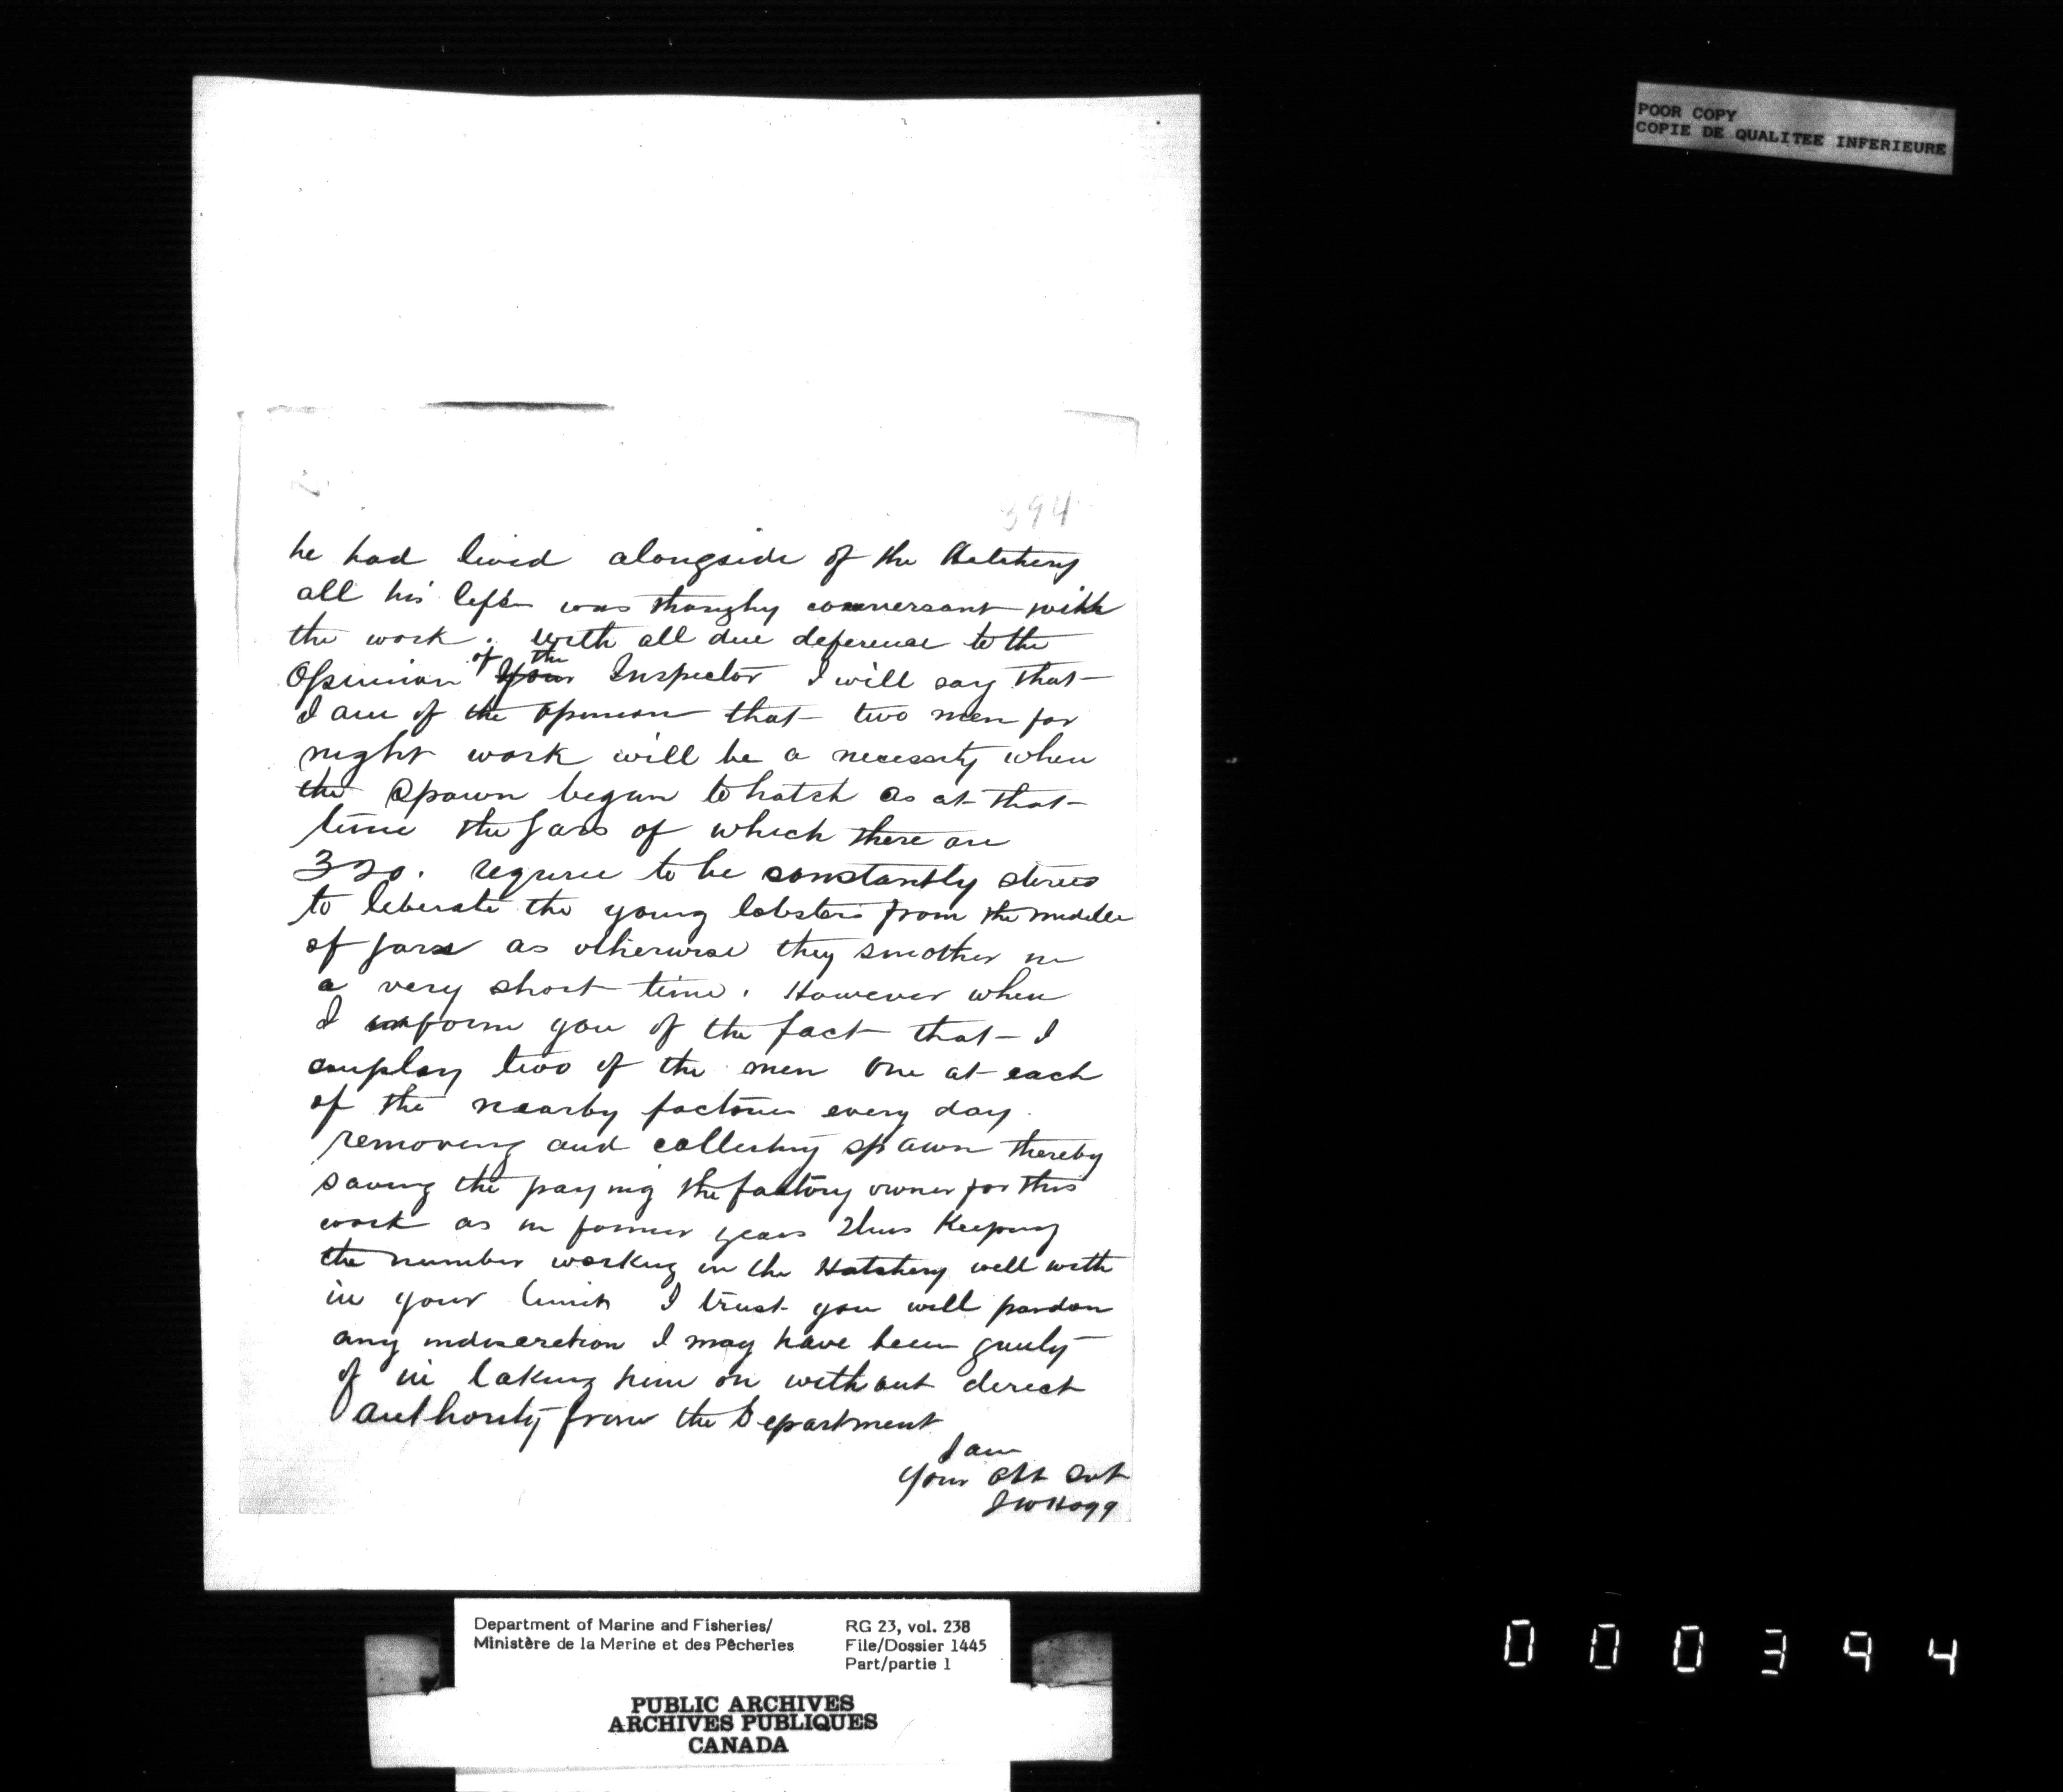 POOR COPY
COPIE DE QUALITEE INFERIEURE
2.
394
he had lived alongside of the Hatchery
all his life was thoughy conversant with
the work. With all due deference to the
of the
Opinion Your Inspector I will say that
I am of the opinion that two men for
night work will be a necessity when
the Spawn begun to hatch as at that
time the Jars of which there are
320. require to be constantly stired
to liberate the young lobsters from the middle
of Jars as otherwise they smother in
a very short time. However when
I inform you of the fact that I
employ two of the men one at each
of the nearby factories every day.
removing and collecting spawn thereby
saving the paying the factory owner for this
work as in former years Thus Keeping
the number working in the Hatchery well with
in your limits I trust you will pardon
any indiscretion I may have been guilty
of in taking him on without direct
authority from the Department
I am
Your Obt Svt
J W Hogg
Department of Marine and Fisheries/
Ministère de la Marine et des Pêcheries
RG 23, vol. 238
File/Dossier 1445
Part/partie 1
PUBLIC ARCHIVES
ARCHIVES PUBLIQUES
CANADA
000394